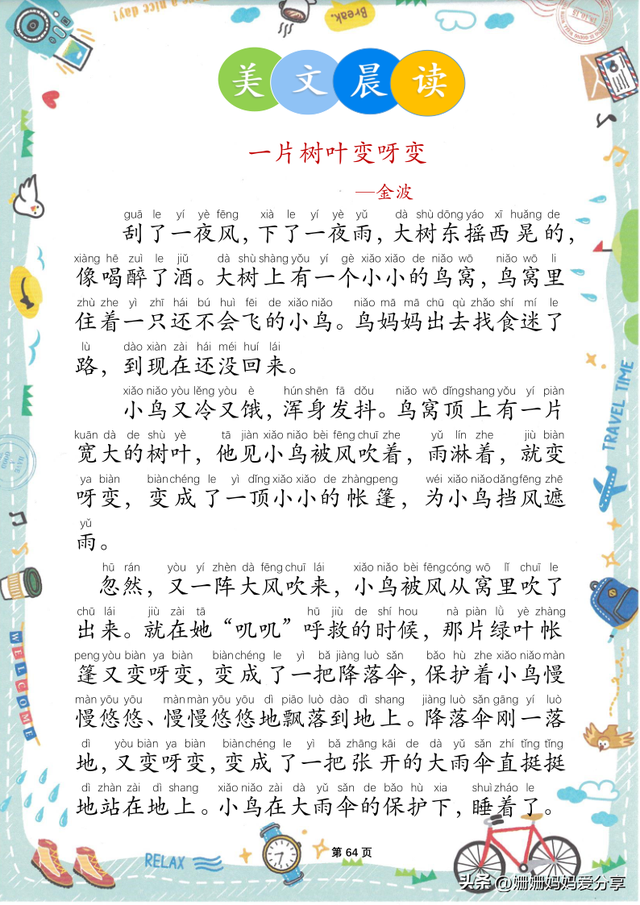 a nice day!
Break.
美文晨读
一片树叶变呀变
—金波
guā le yí yè fēng xià le yí yè yǔ dà shù dōng yáo xī huǎng de
刮了一夜风，下了一夜雨，大树东摇西晃的，
xiàng hē zuì le jiǔ dà shù shàng yǒu yí gè xiǎo xiǎo de niǎo wō niǎo wō li
像喝醉了酒。大树上有一个小小的鸟窝，鸟窝里
zhù zhe yì zhī hái bú huì fēi de xiǎo niǎo niǎo mā mā chū qù zhǎo shí mí le
住着一只还不会飞的小鸟。鸟妈妈出去找食迷了
lù dào xiàn zài hái méi huí lái
路，到现在还没回来。
xiǎo niǎo yòu lěng yòu è hún shēn fā dǒu niǎo wō dǐng shang yǒu yí piàn
小鸟又冷又饿，浑身发抖。鸟窝顶上有一片
kuān dà de shù yè tā jiàn xiǎo niǎo bèi fēng chuī zhe yǔ lín zhe jiù biàn
宽大的树叶，他见小鸟被风吹着，雨淋着，就变
ya biàn biàn chéng le yì dǐng xiǎo xiǎo de zhàng peng wéi xiǎo niǎo dǎng fēng zhē
呀变，变成了一顶小小的帐篷，为小鸟挡风遮
yǔ
雨。
hū rán yòu yí zhèn dà fēng chuī lái xiǎo niǎo bèi fēng cóng wō lǐ chuī le
忽然，又一阵大风吹来，小鸟被风从窝里吹了
chū lái jiù zài tā hū jiù de shí hou nà piàn lǜ yè zhàng
出来。就在她“叽叽”呼救的时候，那片绿叶帐
peng yòu biàn ya biàn biàn chéng le yì bǎ jiàng luò sǎn bǎo hù zhe xiǎo niǎo màn
篷又变呀变，变成了一把降落伞，保护着小鸟慢
màn yōu yōu màn màn yōu yōu dì piāo luò dào dì shang jiàng luò sǎn gāng yí luò
慢悠悠、慢慢悠悠地飘落到地上。降落伞刚一落
dì yòu biàn ya biàn biàn chéng le yì bǎ zhāng kāi de dà yǔ sǎn zhí tǐng tǐng
地，又变呀变，变成了一把张开的大雨伞直挺挺
dì zhàn zài dì shang xiǎo niǎo zài dà yǔ sǎn de bǎo hù xia shuì zháo le
地站在地上。小鸟在大雨伞的保护下，睡着了。
TRAVEL TIME
WELCOME
RELAX
第 64 页
头条 @姗姗妈妈爱分享